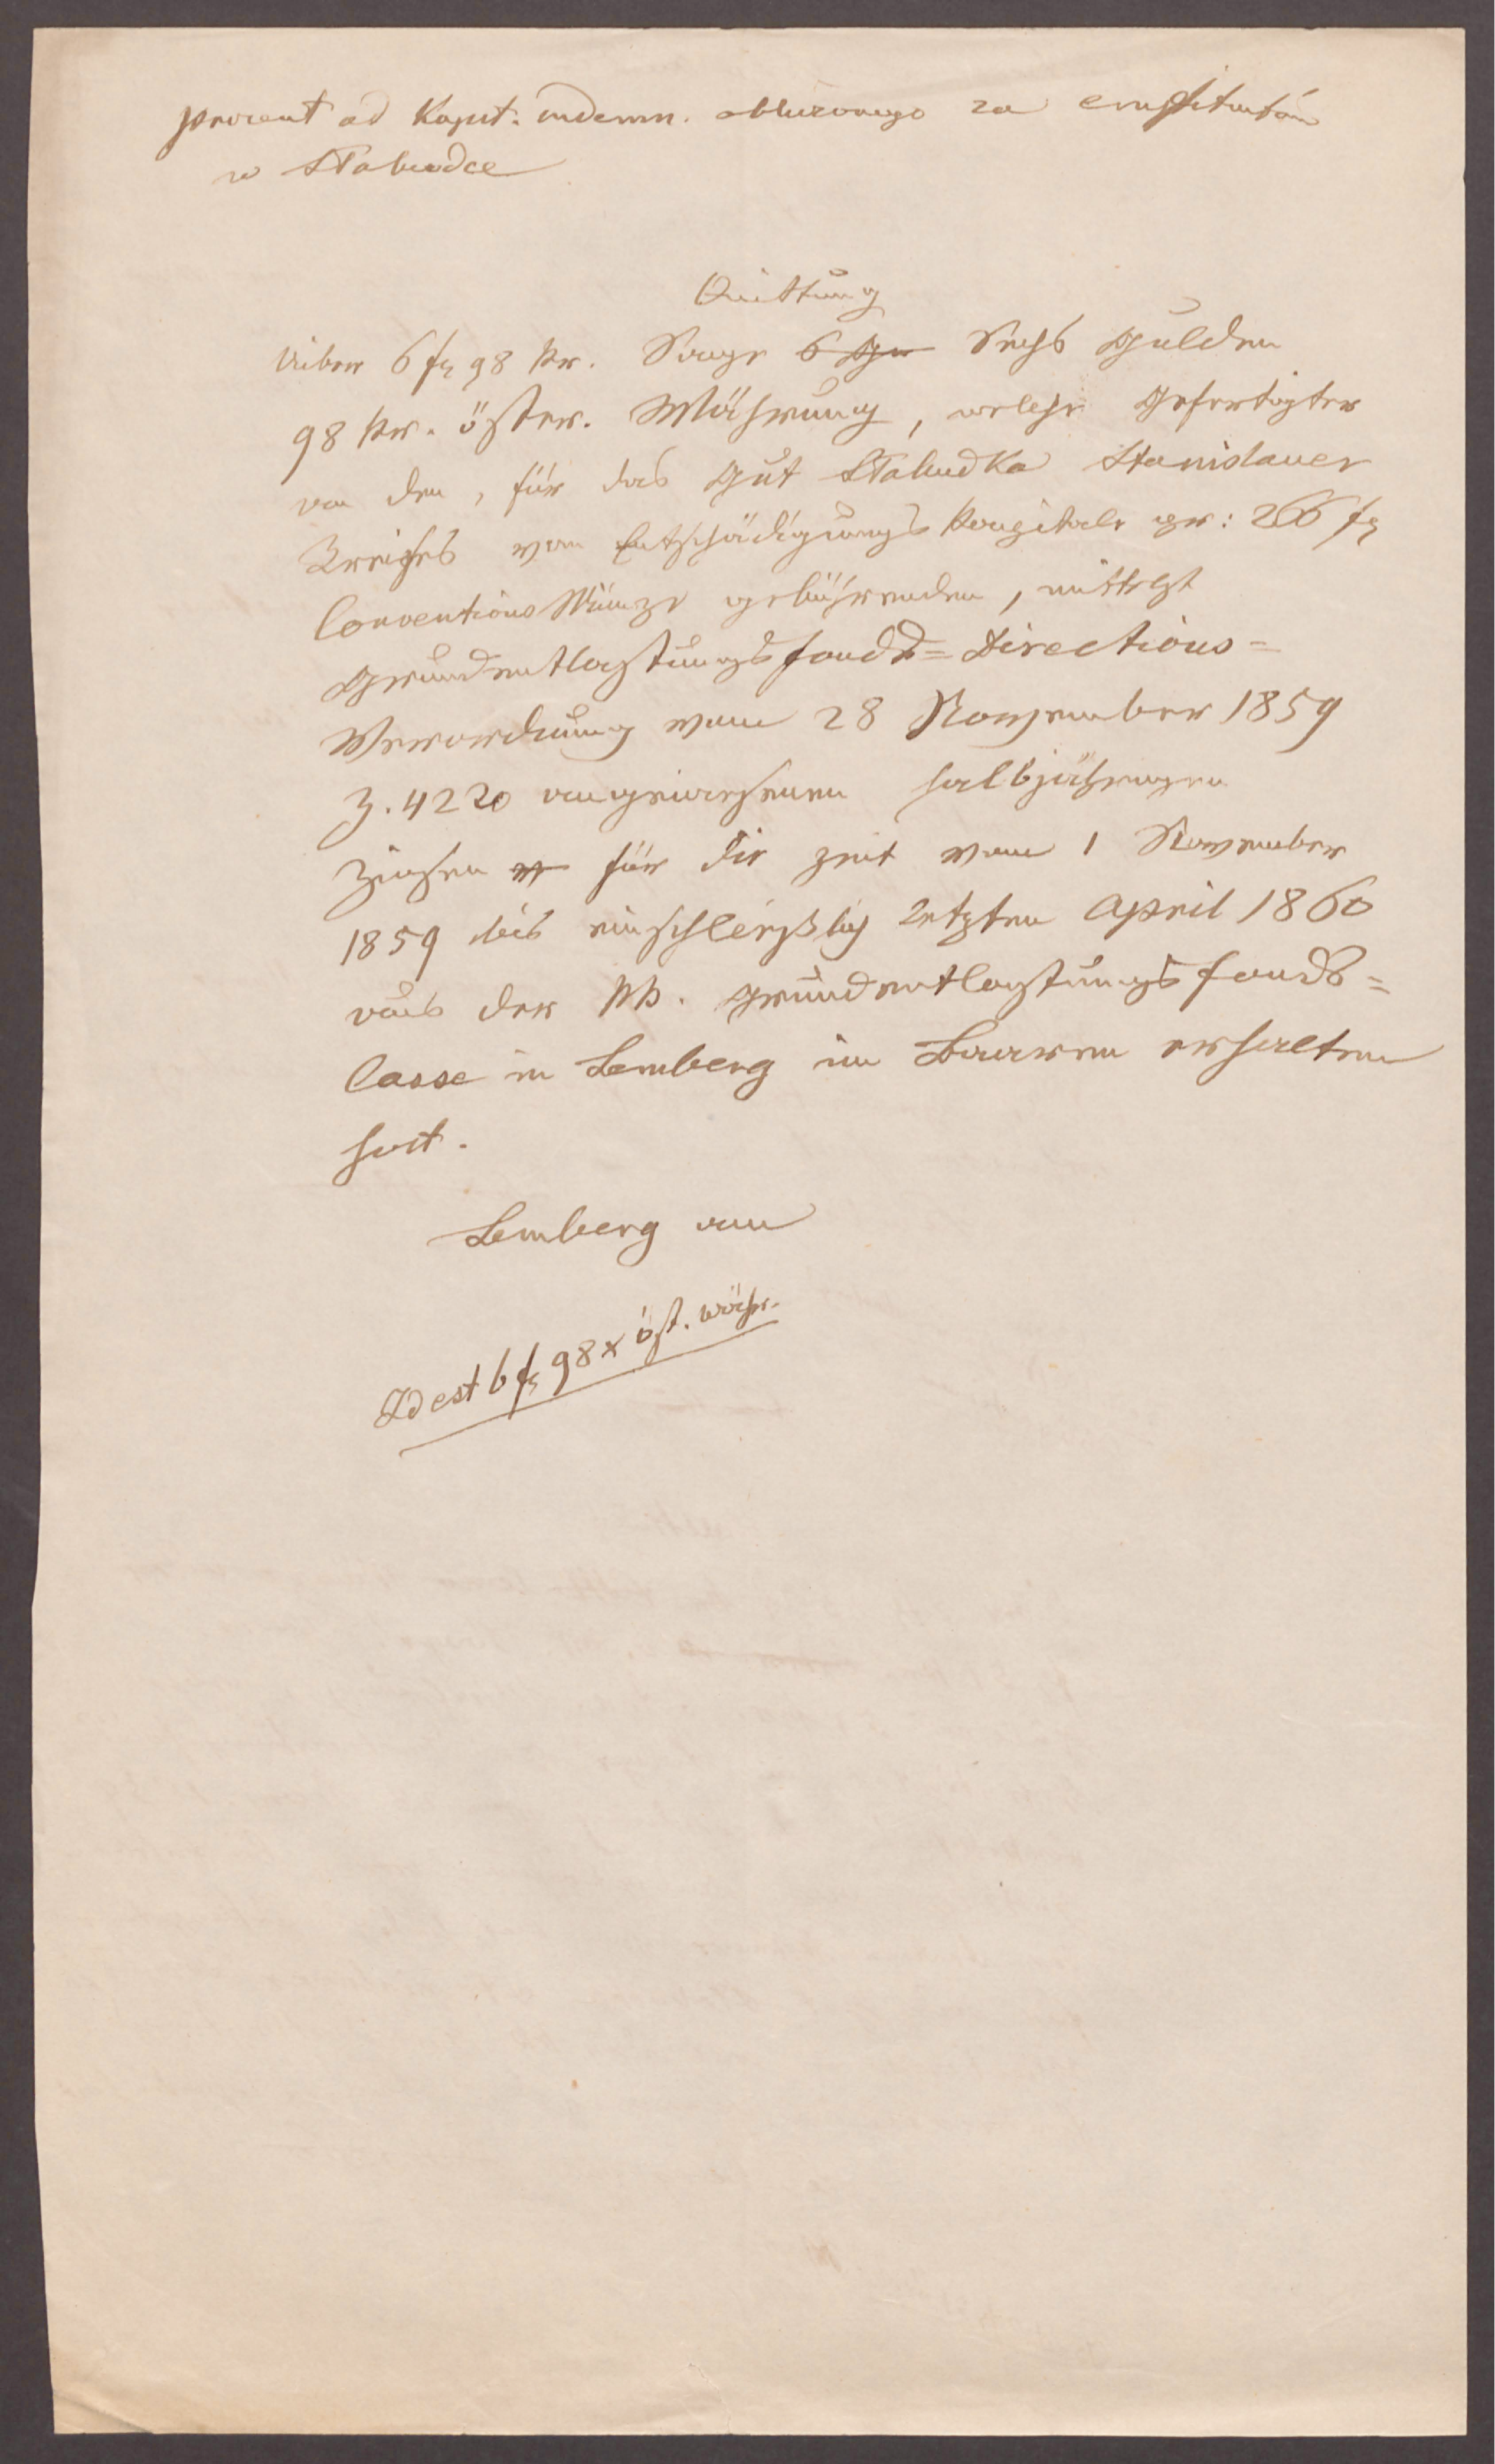 procent od Kapit. indemn. obliczonego za emfiteutów
w Słabudce
Quittung
Über 6 fl 98 kr. Sage 6 Gu Sechs Gulden
98 kr. österr. Währung, welche Gefertigter
von den, für das Gut Słabudka Stanislauer
Kreises vom Entschädigungs Kapitale pr: 266 fl
Conventions Münze gebührenden, mittelst
Grundentlastungsfonds=Directions=
Verordnung vom 28 November 1859
Z. 4220 angewiesenen halbjährigen
Zinsen für die Zeit vom 1 November
1859 bis einschließlich letzten April 1860
aus der kk. Grundentlastungsfonds=
Casse in Lemberg im Baaren erhalten
hat.
Lemberg am
Id est 6 fl 98 x öst. währ.